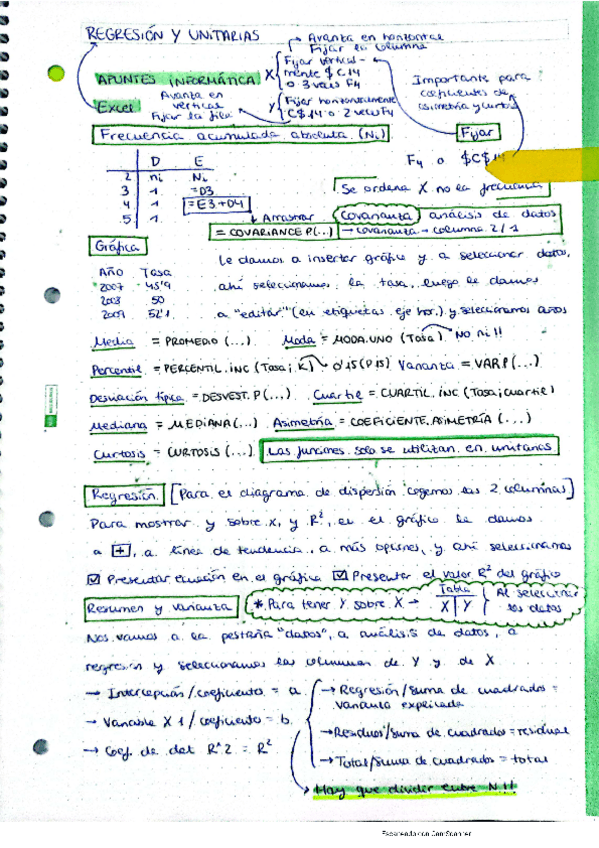 REGRESIÓN Y UNITARIAS
→ Avanza en horizontal
Fijar la columna
APUNTES INFORMÁTICA
Excel
X Fijar vertical-
mente $C14
o 3 veces F4
Avanza en
vertical
Fijar la fila
Y Fijar horizontalmente
C$14 o 2 veces F4
Importante para
coeficientes de
asimetría y curtosis
Frecuencia acumulada absoluta (Ni)
Fijar
F4 o $C$14
D E
2 ni Ni
3 1 =D3
4 1 =E3+D4
5 1 ↓ Arrastrar
Se ordena X no la frecuencia
Covarianza análisis de datos
= COVARIANCE.P(...) → covarianza → columna 2/1
Gráfica
Le damos a insertar gráfico y a seleccionar datos,
Año Tasa
2007 45'9
2008 50
2009 52'1
ahí seleccionamos la tasa, luego le damos
a "editar" (en etiquetas eje hor.) y seleccionamos años
Media = PROMEDIO (...) Moda = MODA.UNO (Tasa) No ni!!
Percentil = PERCENTIL.INC (Tasa; K) → 0'15 (P15) Varianza = VAR.P (...)
Desviación típica = DESVEST.P(...) Cuartil = CUARTIL.INC (Tasa; cuartil)
Mediana = MEDIANA (...) Asimetría = COEFICIENTE.ASIMETRÍA (...)
Curtosis = CURTOSIS (...) Las funciones solo se utilizan en unitarias
Regresión [Para el diagrama de dispersión cogemos las 2 columnas]
Para mostrar y sobre x, y R², en el gráfico le damos
a +, a línea de tendencia, a más opciones, y ahí seleccionamos
☑ Presentar ecuación en el gráfico ☑ Presentar el valor R² del gráfico
Resumen y varianza
* Para tener Y sobre X → Tabla X | Y Al seleccionar los datos
Nos vamos a la pestaña "datos", a análisis de datos, a
regresión y seleccionamos las columnas de Y y de X
→ Intercepción/coeficientes = a
→ Variable X 1 / coeficiente = b
→ Coef. de det R^2 = R²
→ Regresión/suma de cuadrados =
varianza explicada
→ Residuos/suma de cuadrados = residual
→ Total/suma de cuadrados = total
→ Hay que dividir entre N!!
Escaneado con CamScanner